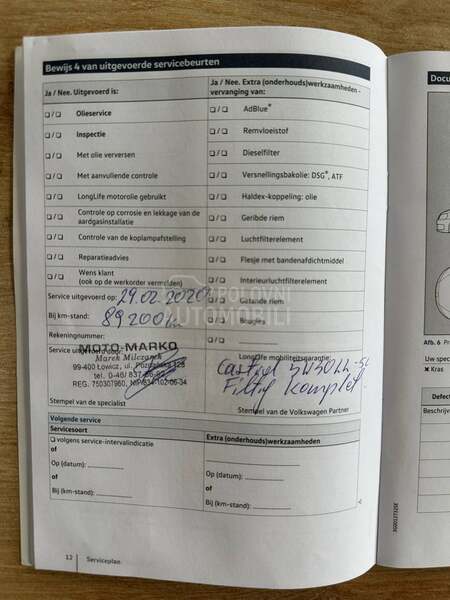 Bewijs 4 van uitgevoerde servicebeurten
Ja / Nee. Uitgevoerd is:
Ja / Nee. Extra (onderhouds)werkzaamheden - vervanging van:
❑ / ❑ Olieservice
❑ / ❑ AdBlue®
❑ / ❑ Inspectie
❑ / ❑ Remvloeistof
❑ / ❑ Met olie verversen
❑ / ❑ Dieselfilter
❑ / ❑ Met aanvullende controle
❑ / ❑ Versnellingsbakolie: DSG®, ATF
❑ / ❑ LongLife motorolie gebruikt
❑ / ❑ Haldex-koppeling: olie
❑ / ❑ Controle op corrosie en lekkage van de aardgasinstallatie
❑ / ❑ Geribde riem
❑ / ❑ Controle van de koplampafstelling
❑ / ❑ Luchtfilterelement
❑ / ❑ Reparatieadvies
❑ / ❑ Flesje met bandenafdichtmiddel
❑ / ❑ Wens klant
(ook op de werkorder vermelden)
❑ / ❑ Interieurluchtfilterelement
Service uitgevoerd op: 29.02.2020
❑ / ❑ Getande riem
POLOVNI
AUTOMOBILI
Bij km-stand: 89200km
❑ / ❑ Bougies
Rekeningnummer:
Service uitgevoerd door:
LongLife mobiliteitsgarantie:
MOTO-MARKO
Marek Milczarek
99-400 Łowicz, ul. Poznańska 128
tel. 0-46/837-
REG. 750307960, NIP 834-102-06-34
Castrol 5W30LL
Filtry komplet.
Stempel van de specialist
Stempel van de Volkswagen Partner
Volgende service
Servicesoort
Extra (onderhouds)werkzaamheden
❑ volgens service-intervalindicatie
of
Op (datum):
of
Bij (km-stand):
Op (datum):
of
Bij (km-stand):
12 Serviceplan
Docu
Afb. 6
Uw spec
× Kras
Defect
Beschrijv